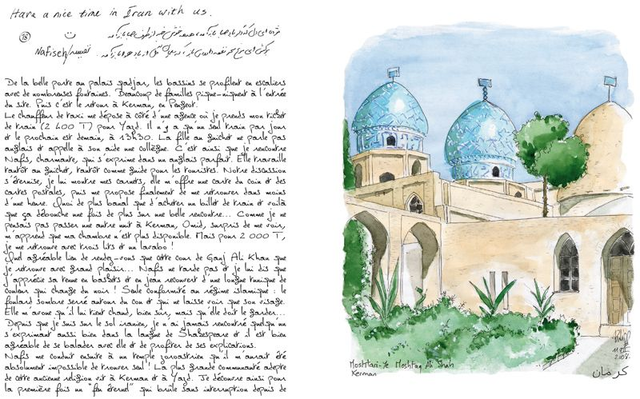 Have a nice time in Iran with us.
Nafiseh
De la belle porte au palais qadjar, les bassins se profilent en escaliers
avec de nombreuses fontaines. Beaucoup de familles pique-niquent à l'entrée
du site. Puis c'est le retour à Kerman, en Peugeot.
Le chauffeur de taxi me dépose à côté d'une agence où je prends mon ticket
de train (2 600 T) pour Yazd. Il n'y a qu'un seul train par jour
et le prochain est demain, à 13h30. La fille au guichet ne parle pas
anglais et appelle à son aide une collègue. C'est ainsi que je rencontre
Nafis, charmante, qui s'exprime dans un anglais parfait. Elle travaille
tantôt au guichet, tantôt comme guide pour les touristes. Notre discussion
s'éternise, je lui montre mes carnets, elle m'offre une carte du coin et des
cartes postales, puis me propose finalement de me retrouver dans moins
d'une heure. Quoi de plus banal que d'acheter un billet de train et voilà
que ça débouche une fois de plus sur une belle rencontre... Comme je ne
pensais pas passer une autre nuit à Kerman, Omid, surpris de me voir,
m'apprend que ma chambre n'est plus disponible. Mais pour 2 000 T,
je me retrouve avec trois lits et un lavabo !
Quel agréable lieu de rendez-vous que cette cour de Ganj Ali Khan que
je retrouve avec grand plaisir... Nafis ne tarde pas et je lui dis que
j'apprécie sa tenue en baskets et en jean recouvert d'une longue tunique de
couleur qui change du noir ! Seule conformité au régime islamique : le
foulard sombre serré autour du cou et qui ne laisse voir que son visage.
Elle m'avoue qu'il lui tient chaud, bien sûr, mais qu'elle doit le garder...
Depuis que je suis sur le sol iranien, je n'ai jamais rencontré quelqu'un
s'exprimant aussi bien dans la langue de Shakespeare et il est bien
agréable de se balader avec elle et de profiter de ses explications.
Nafis me conduit ensuite à un temple zoroastrien qu'il m'aurait été
absolument impossible de trouver seul ! La plus grande communauté adepte
de cette ancienne religion vit à Kerman et à Yazd. Je découvre ainsi pour
la première fois un "feu éternel" qui brûle sans interruption depuis de
Moshtari-ye Moshtaq Ali Shah
Kerman
کرمان